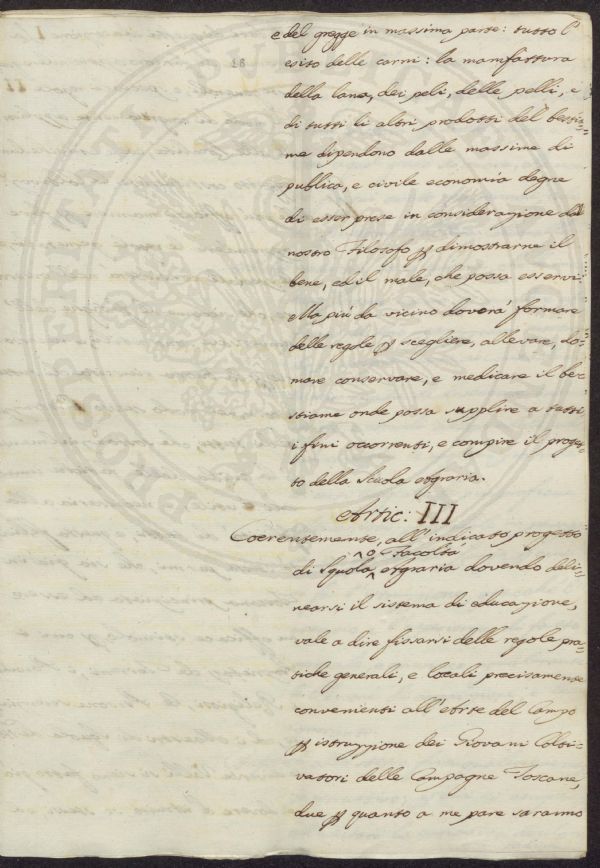 e del gregge in massima parte: tutto l'
esito delle carni: la manifattura
della lana, dei peli, delle pelli, e
di tutti li altri prodotti del bestia=
me dipendono dalle massime di
publica, e civile economia degne
di esser prese in considerazione dal
nostro Filosofo p dimostrarne il
bene, ed il male, che possa esservi.
Ma più da vicino doverà formare
delle regole p scegliere, allevare, do=
mare conservare, e medicare il be=
stiame onde possa supplire a tutti
i fini occorrenti, e compire il proget=
to della Scuola Agraria.
Artic: III
Coerentemente, all'indicato progetto
o Facoltà
di Squola, Agraria dovendo deli=
nearsi il sistema di educazione,
vale a dire fissarsi delle regole pra=
tiche generali, e locali precisamente
convenienti all'Arte del Campo
p istruzzione dei Giovani Colti=
vatori delle Campagne Toscane,
due p quanto a me pare saranno
PROSPERITATI PUBLICAE